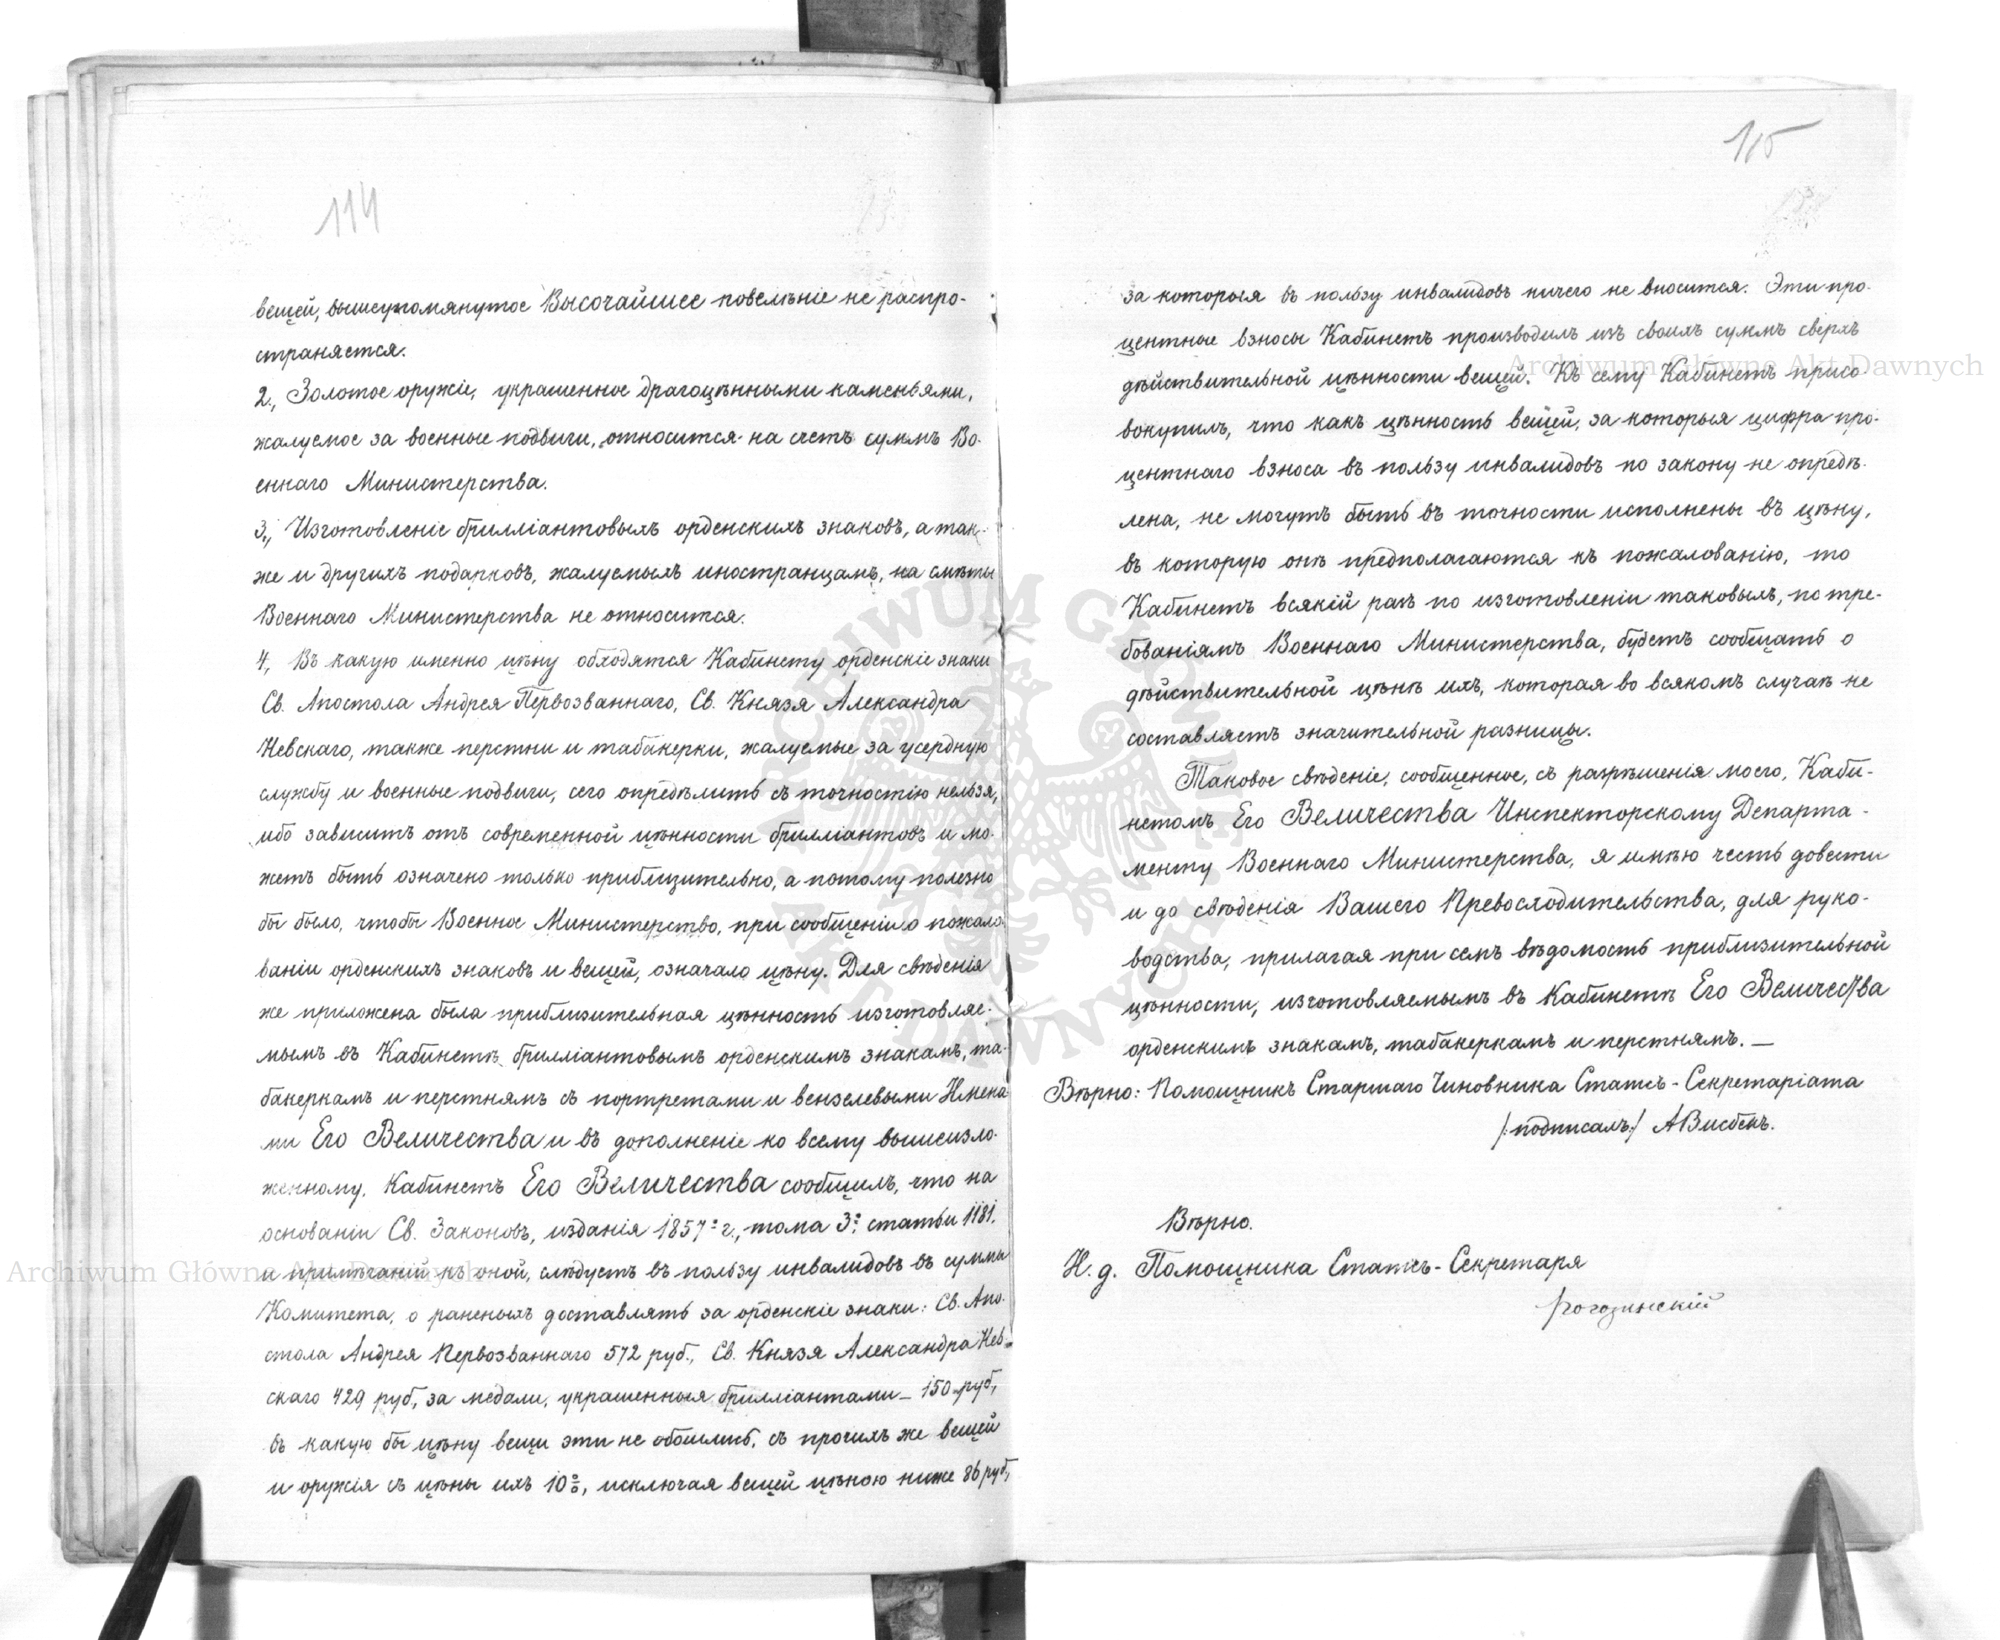 114
вещей, вышеупомянутое Высочайшее повелѣніе не распро-
страняется.
2., Золотое оружіе, украшенное драгоцѣнными каменьями,
жалуемое за военные подвиги, относится на счетъ суммъ Во-
еннаго Министерства.
3., Изготовленіе брилліантовыхъ орденскихъ знаковъ, а так-
же и другихъ подарковъ, жалуемыхъ иностранцамъ, на смѣты
Военнаго Министерства не относится.
4., Въ какую именно цѣну обходятся Кабинету орденскіе знаки
Св. Апостола Андрея Первозваннаго, Св. Князя Александра
Невскаго, также перстни и табакерки, жалуемые за усердную
службу и военные подвиги, сего опредѣлить съ точностію нельзя,
ибо зависитъ отъ современной цѣнности брилліантовъ и мо-
жетъ быть означено только приблизительно, а потому полезно
бы было, чтобы Военное Министерство, при сообщеніи о пожало-
ваніи орденскихъ знаковъ и вещей, означало цѣну. Для свѣденія
же приложена была приблизительная цѣнность изготовляе-
мымъ въ Кабинетѣ брилліантовымъ орденскимъ знакамъ, та-
бакеркамъ и перстнямъ съ портретами и вензелевыми Имена-
ми Его Величества и въ дополненіе ко всему вышеизло-
женному, Кабинетъ Его Величества сообщилъ, что на
основаніи Св. Законовъ, изданія 1857 г., тома 3. статьи 1181.
и примѣчаній къ оной, слѣдуетъ въ пользу инвалидовъ въ суммы
Комитета, о раненыхъ доставлять за орденскіе знаки: Св. Апо-
стола Андрея Первозваннаго 572 руб., Св. Князя Александра Нев-
скаго 429 руб, за медали, украшенныя брилліантами – 150 руб,
въ какую бы цѣну вещи эти не обошлись, съ прочихъ же вещей
и оружія съ цѣны ихъ 10%, исключая вещей цѣною ниже 86 руб,
115
за которыя въ пользу инвалидовъ ничего не вносится. Эти про-
центные взносы Кабинетъ производилъ изъ своихъ суммъ сверхъ
дѣйствительной цѣнности вещей. Къ сему Кабинетъ присо-
вокупилъ, что какъ цѣнность вещей, за которыя цифра про-
центнаго взноса въ пользу инвалидовъ по закону не опредѣ-
лена, не могутъ быть въ точности исполнены въ цѣну,
въ которую онѣ предполагаются къ пожалованію, то
Кабинетъ всякій разъ по изготовленіи таковыхъ, по тре-
бованіямъ Военнаго Министерства, будетъ сообщать о
дѣйствительной цѣнѣ ихъ, которая во всякомъ случаѣ не
составляетъ значительной разницы.
Таковое свѣденіе, сообщенное, съ разрѣшенія моего, Каби-
нетомъ Его Величества Инспекторскому Департа-
менту Военнаго Министерства, я имѣю честь довести
и до свѣденія Вашего Превосходительства, для руко-
водства, прилагая при семъ вѣдомость приблизительной
цѣнности, изготовляемымъ въ Кабинетѣ Его Величества
орденскимъ знакамъ, табакеркамъ и перстнямъ. —
Вѣрно: Помощникъ Старшаго Чиновника Статсъ-Секретаріата
/:подписалъ:/ А
Вѣрно.
И. д. Помощника Статсъ-Секретаря
Рогозинскій
Archiwum Główne Akt Dawnych
Archiwum Główne Akt Dawnych
ARCHIWUM GŁÓWNE AKT DAWNYCH